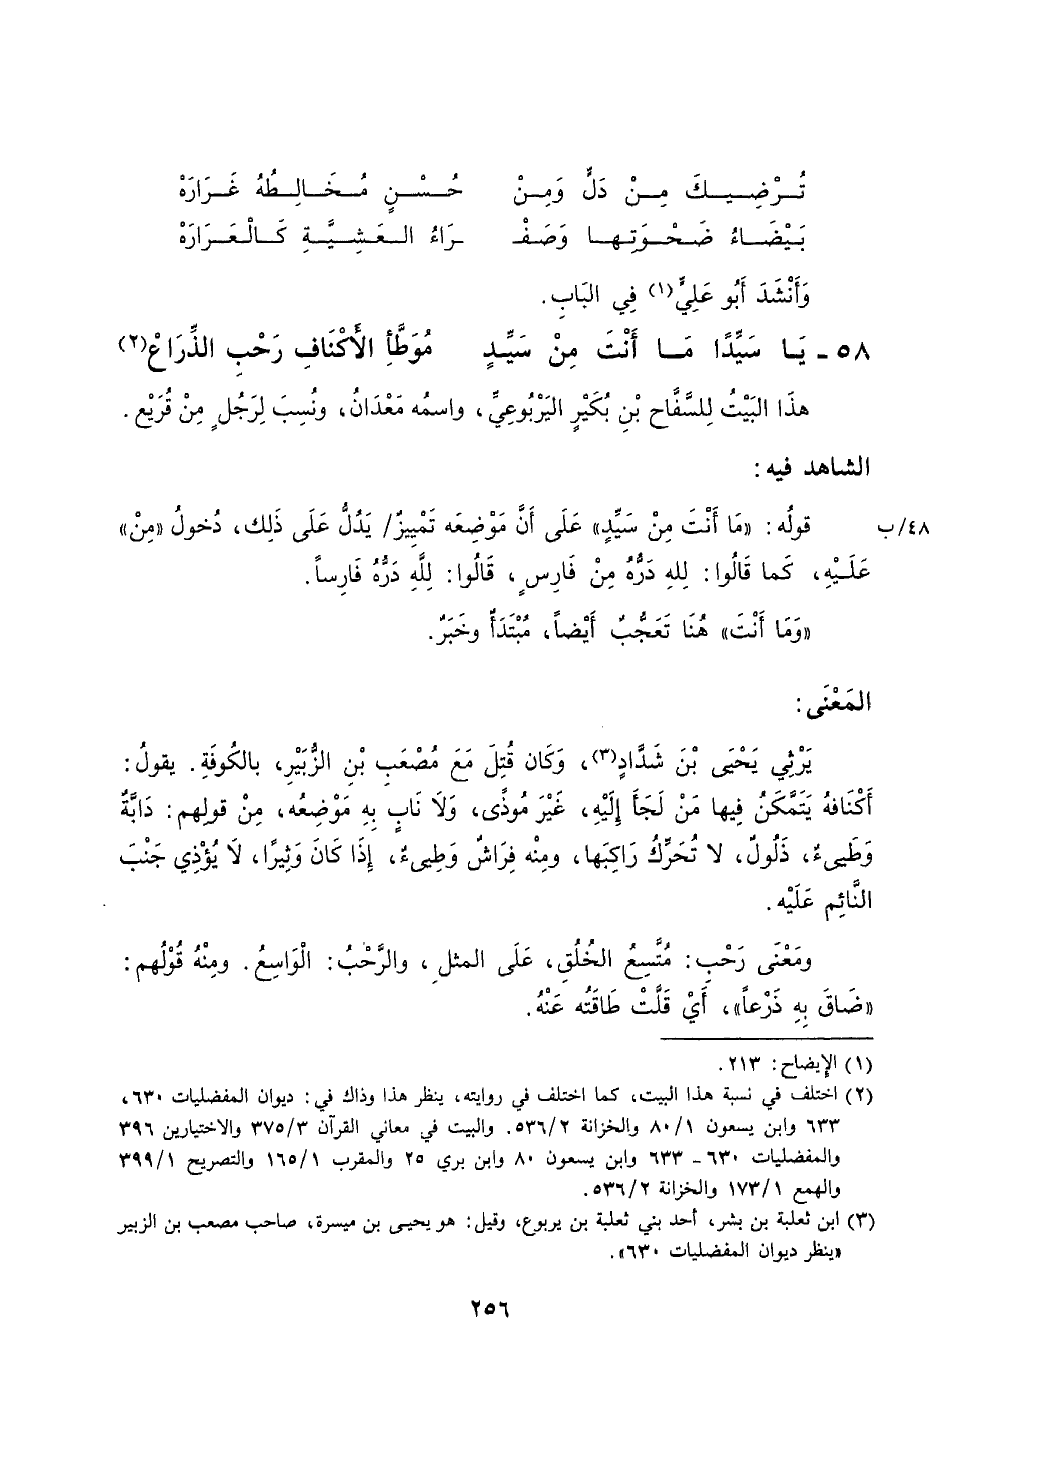 تُـرْضِـيـكَ مِـنْ دَلٍّ وَمِـنْ حُـسْـنٍ مُـخَـالِـطُهُ غَـرَارَهْ
بَـيْـضَـاءُ ضَـحْـوَتِـهـا وَصَـفْـ ـرَاءُ الـعَـشِـيَّـةِ كَـالْعَـرَارَهْ
وَأَنْشَدَ أَبُو عَلِيٍّ(١) فِي البَابِ.
٥٨ ـ يَـا سَيِّدًا مَـا أَنْتَ مِنْ سَيِّـدٍ مُوَطَّأِ الأَكْنَافِ رَحْبِ الذِّرَاعْ(٢)
هذَا البَيْتُ لِلسَّفَّاحِ بْنِ بُكَيْرٍ اليَرْبُوعِيِّ، واسمُه مَعْدَانُ، ونُسِبَ لِرَجُلٍ مِنْ قُرَيْعٍ.
الشاهد فيه:
٤٨/ب قولُه: «مَا أَنْتَ مِنْ سَيِّدٍ» عَلَى أَنَّ مَوْضِعَه تَمْيِيزٌ/ يَدُلُّ عَلَى ذَلِك، دُخولُ «مِنْ»
عَلَـيْهِ، كَما قَالُوا: لِلهِ دَرُّهُ مِنْ فَارِسٍ، قَالُوا: لِلَّهِ دَرُّهُ فَارِساً.
«وَمَا أَنْتَ» هُنَا تَعَجُّبٌ أَيْضاً، مُبْتَدَأٌ وخَبَرٌ.
المَعْنَى:
يَرْثِي يَحْيَى بْنَ شَدَّادٍ(٣)، وَكَان قُتِلَ مَعَ مُصْعَبِ بْنِ الزُّبَيْرِ، بالكُوفَةِ. يقولُ:
أَكْنَافهُ يَتَمَّكَنُ فِيها مَنْ لَجَأَ إِلَيْهِ، غَيْرَ مُوذًى، وَلَا نَابٍ بِهِ مَوْضِعُه، مِنْ قولِهم: دَابَّةٌ
وَطَيىءٌ، ذَلُولٌ، لا تُحَرِّكُ رَاكِبَها، ومِنْه فِرَاشٌ وَطِيىءٌ، إِذَا كَانَ وَثِيرًا، لَا يُؤْذِي جَنْبَ
النَّائِمِ عَلَيْه.
ومَعْنَى رَحْبِ: مُتَّسِعُ الخُلُقِ، عَلَى المثلِ، والرَّحْبُ: الْوَاسِعُ. ومِنْهُ قُوْلُهم:
«ضَاقَ بِهِ ذَرْعاً»، أَيْ قَلَّتْ طَاقَتُه عَنْهُ.
(١) الإيضاح: ٢١٣.
(٢) اختلف في نسبة هذا البيت، كما اختلف في روايته، ينظر هذا وذاك في: ديوان المفضليات ٦٣٠،
٦٣٣ وابن يسعون ٨٠/١ والخزانة ٥٣٦/٢. والبيت في معاني القرآن ٣٧٥/٣ والاختيارين ٣٩٦
والمفضليات ٦٣٠ ـ ٦٣٣ وابن يسعون ٨٠ وابن بري ٢٥ والمقرب ١٦٥/١ والتصريح ٣٩٩/١
والهمع ١٧٣/١ والخزانة ٥٣٦/٢.
(٣) ابن ثعلبة بن بشر، أحد بني ثعلبة بن يربوع، وقيل: هو يحيى بن ميسرة، صاحب مصعب بن الزبير
«ينظر ديوان المفضليات ٦٣٠».
٢٥٦